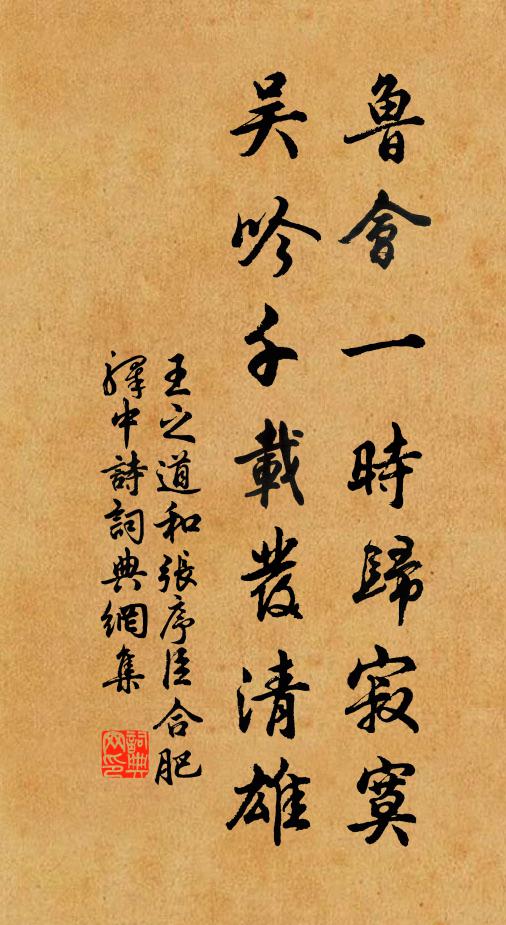 魯會一時歸寂寞
吳吟千載發清雄
王之道和張序臣合肥
驛中詩詞典網集
詞典
网印